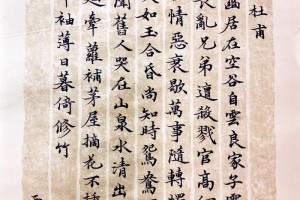 杜甫
幽居在空谷自雲良家子零
喪亂兄弟遭殺戮官高何
情惡衰歇萬事隨轉燭
人如玉合昏尚知時鴛鴦
聞舊人哭在山泉水清出
邊牽蘿補茅屋摘花不插
袖薄日暮倚修竹